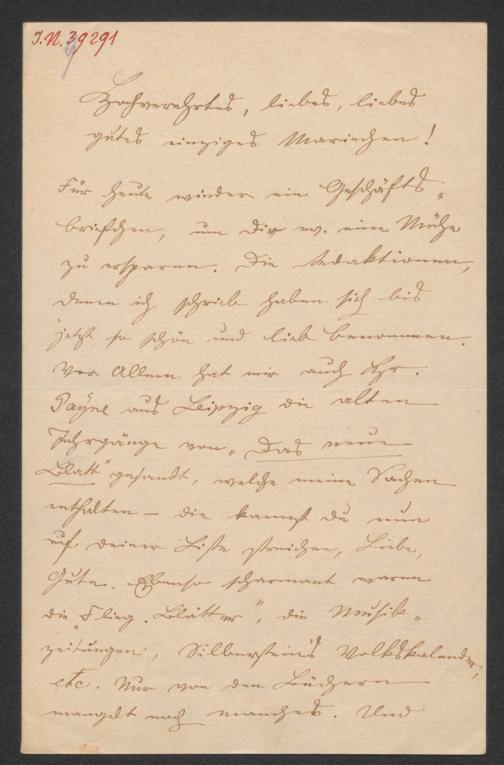 I.N. 39291
Hochverehrtes, liebes, liebes
gutes einziges Mariechen!
Für heute wieder ein Geschäfts-
briefchen, um Dir ev. eine Mühe
zu ersparen. Die Redaktionen,
denen ich schrieb haben sich bis
jetzt so schön und lieb benommen.
Vor Allem hat mir auch Hr.
Payne aus Leipzig die alten
Jahrgänge von „Das neue
Blatt“ gesandt, welche meine Sachen
enthalten – die kannst du nun
auf deiner Liste streichen, Liebe,
Gute. Ebenso scharmant waren
die „Flieg. Blätter“, die Musik-
zeitungen, Silberstein's Volkskalender,
etc. Nur von den Büchern
mangelt noch manches. Und